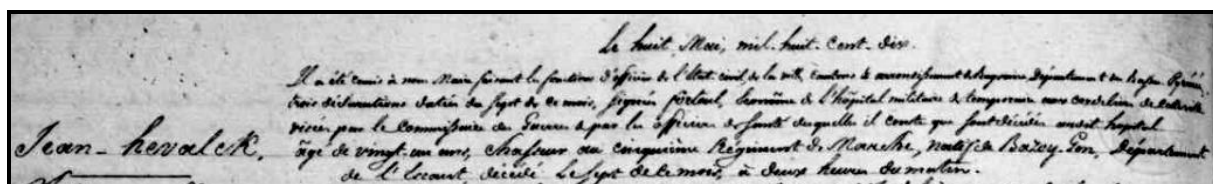 Le huit Mai, mil-huit-cent-dix.
Il a été remis à nous Maire faisant les fonctions d'officier de l'État civil, de la ville, cantons & arrondissement de Bayonne, Département des Basses Pyréné
trois déclarations datées du sept de ce mois, signées forteul, Econôme de l'hôpital militaire & temporaire aux cordeliers de cette ville
visées par le Commissaire des Guerres & par les officiers de Santé desquelles il conste que sont décédés audit hopital
Jean-hevalck. âgé de vingt-un ans, chasseur au cinquième Régiment de Marche, natif de Département
de l'Escaut décédé Le sept de ce mois, à deux heures du matin.